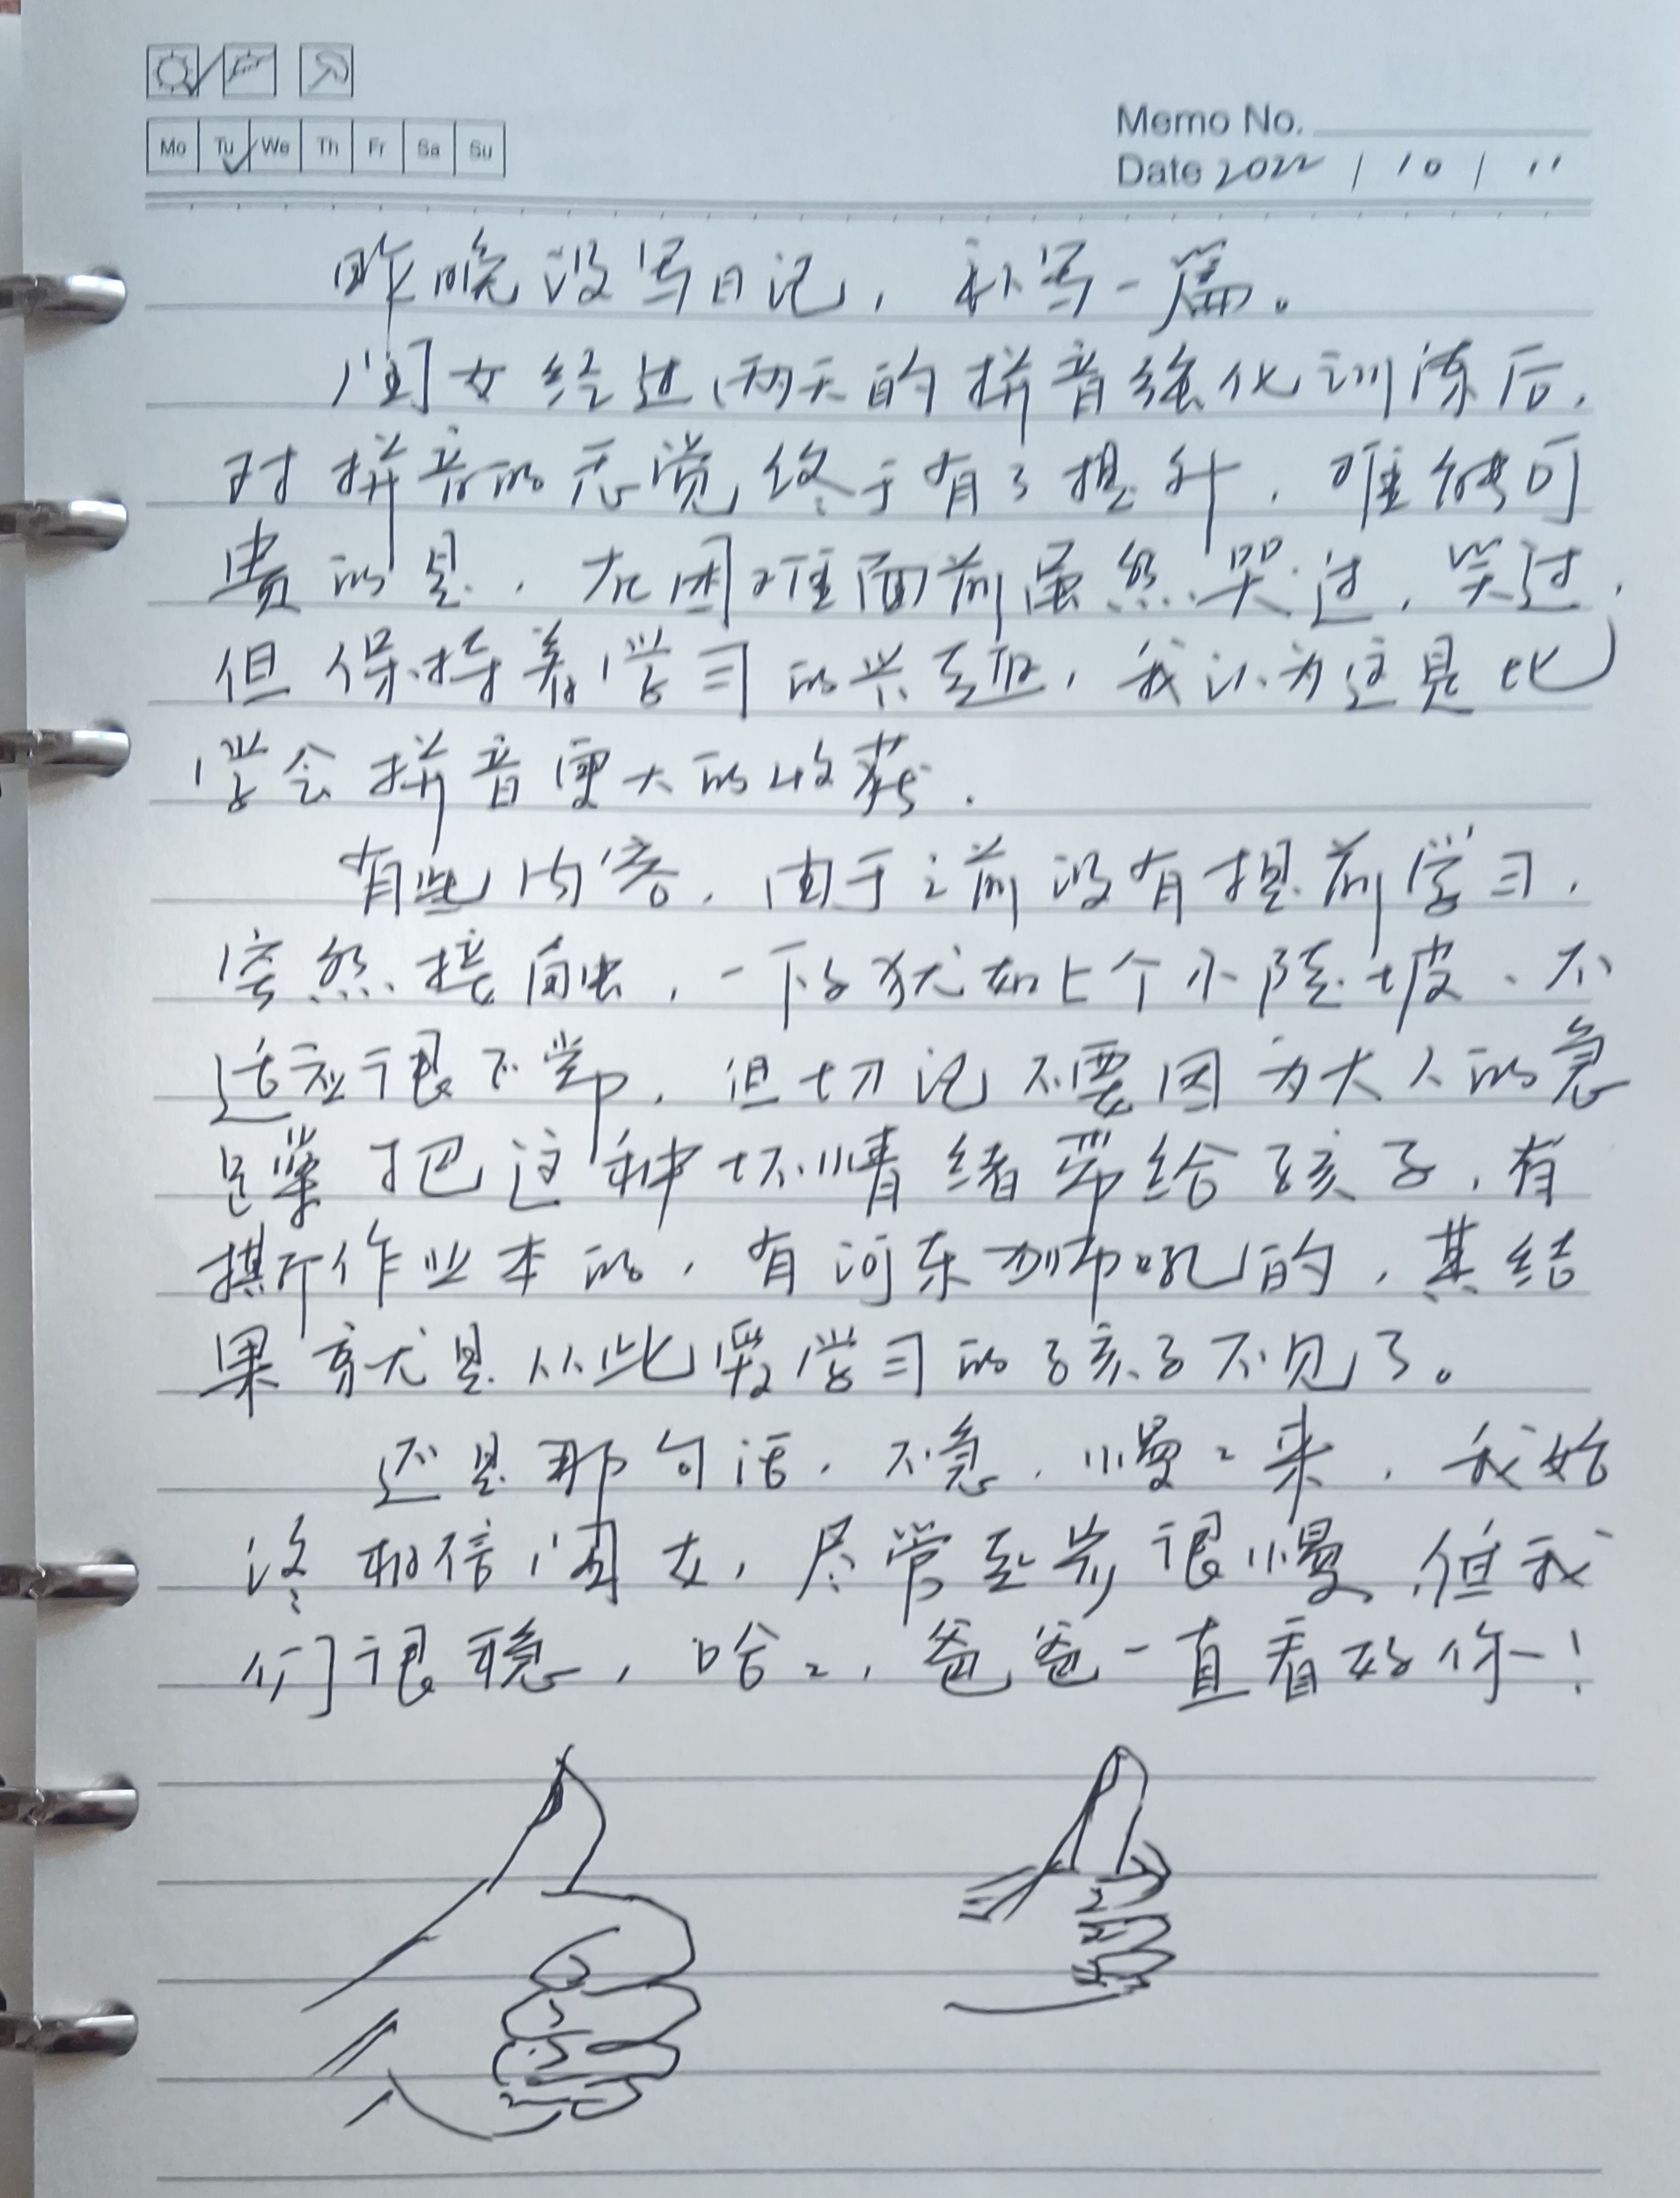 Mo Tu We Th Fr Sa Su
Memo No.
Date 2022 / 10 / 11
昨晚没写日记，补写一篇。
闺女经过两天的拼音强化训练后，
对拼音的感觉终于有了提升，难能可
贵的是，在困难面前虽然哭过，笑过，
但保持着学习的兴趣，我认为这是比
学会拼音更大的收获.
有些内容，由于之前没有提前学习，
突然接触，一下子犹如上个小陡坡、不
适应很正常，但切记不要因为大人的急
躁把这种坏情绪带给孩子，有
撕作业本的，有河东狮吼的，其结
果就是从此爱学习的孩子不见了。
还是那句话，不急，慢々来，我始
终相信闺女，尽管起步很慢，但我
们很稳，哈々，爸爸一直看好你！